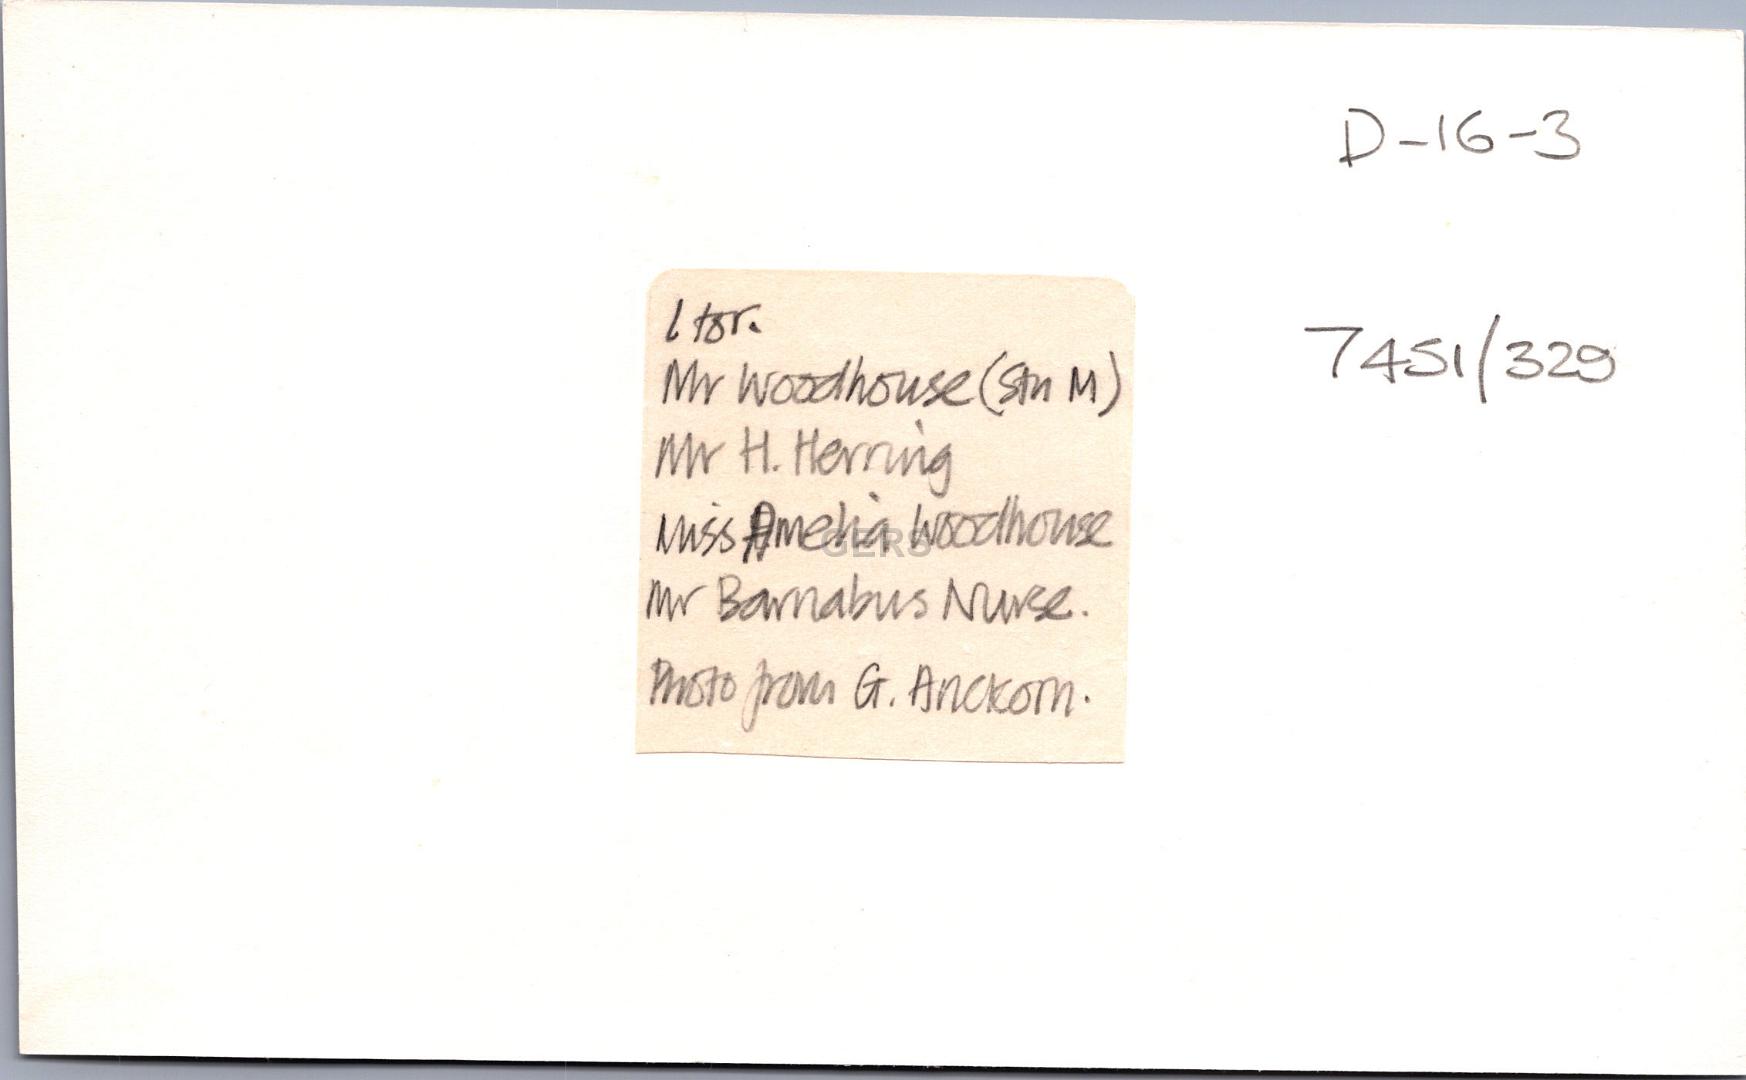 D-16-3
7451/329
l to r.
Mr Woodhouse (Stn M)
Mr H. Herring
Miss Amelia Woodhouse
Mr Barnabus Nurse.
Photo from G. Anckorn.
GERS